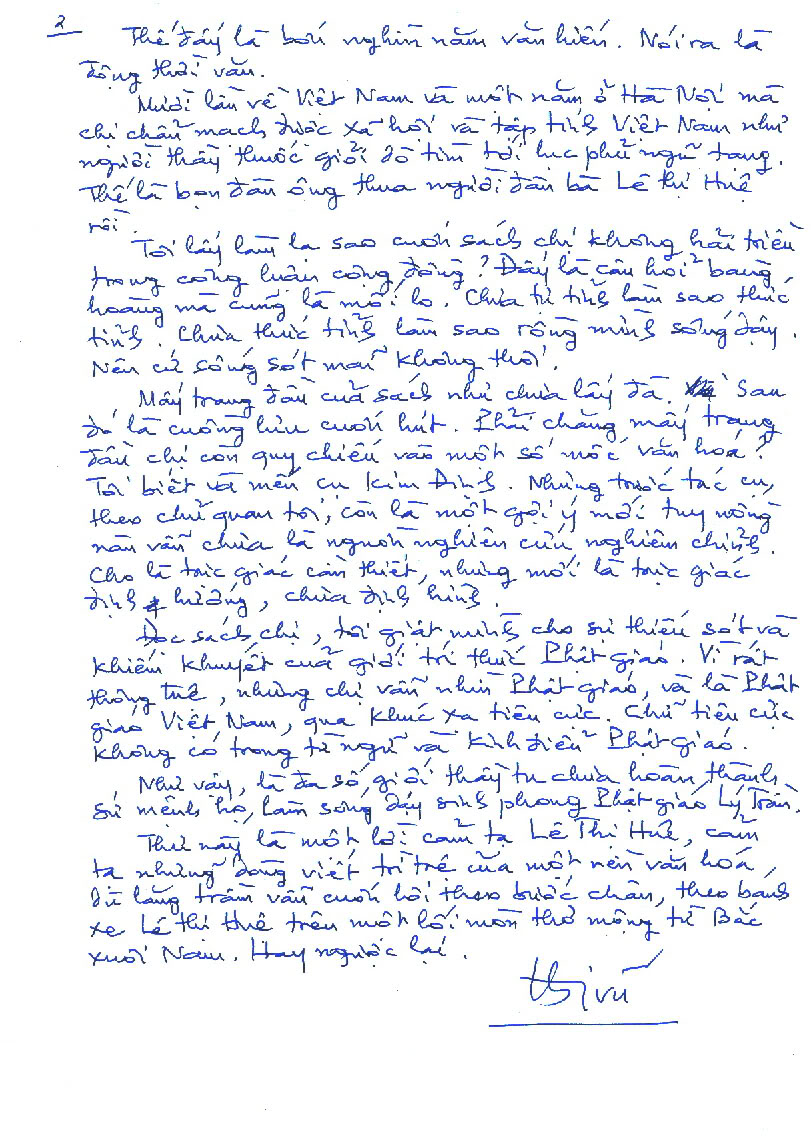 2
Thế đấy là bốn nghìn năm văn hiến. Nói ra là
động thời văn.
Mười lần về Việt Nam và một năm ở Hà Nội mà
chị chẩn mạch được xã hội và tập tính Việt Nam như
người thầy thuốc giỏi dò tìm tới lục phủ ngũ tạng.
Thế là bọn đàn ông thua người đàn bà Lê thị Huệ
rồi.
Tôi lấy làm lạ sao cuốn sách chị không hải triều
trong công luận cộng đồng? Đấy là câu hỏi bàng
hoàng mà cũng là mối lo. Chưa tự tỉnh làm sao thức
tỉnh. Chưa thức tỉnh làm sao rồng mình sống dậy.
Nên cứ sống sót mãi không thôi.
Mấy trang đầu của sách như chưa lấy đà. Sau
đó là cuồng lưu cuốn hút. Phải chăng mấy trang
đầu chị còn quy chiếu vào một số mốc văn hoá?
Tôi biết và mến cụ Kim Định. Nhưng trước tác cụ,
theo chủ quan tôi, còn là một gợi ý mới tuy nồng
nàn vẫn chưa là nguồn nghiên cứu nghiêm chỉnh.
Cho là trực giác cần thiết, nhưng mới là trực giác
định hướng, chưa định hình.
Đọc sách chị, tôi giật mình cho sự thiếu sót và
khiếm khuyết của giới trí thức Phật giáo. Vì rất
thông tuệ, nhưng chị vẫn nhìn Phật giáo, và là Phật
giáo Việt Nam, qua khúc xạ tiêu cực. Chữ tiêu cực
không có trong từ ngữ và kinh điển Phật giáo.
Như vậy, là đa số, giới thầy tu chưa hoàn thành
sứ mệnh họ, làm sống dậy sinh phong Phật giáo Lý Trần.
Thư này là một lời cảm tạ Lê Thị Huệ, cảm
tạ những dòng viết trì trệ của một nền văn hoá,
dù lắng trầm vẫn cuốn hồi theo bước chân, theo bánh
xe Lê thị Huệ trên một lối mòn thơ mộng từ Bắc
xuôi Nam. Hay ngược lại.
thi vũ